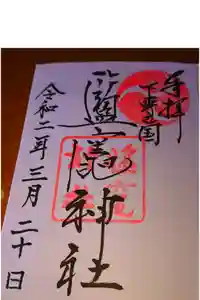 奉拝
下野国
鹽竈神社
令和二年三月二十日